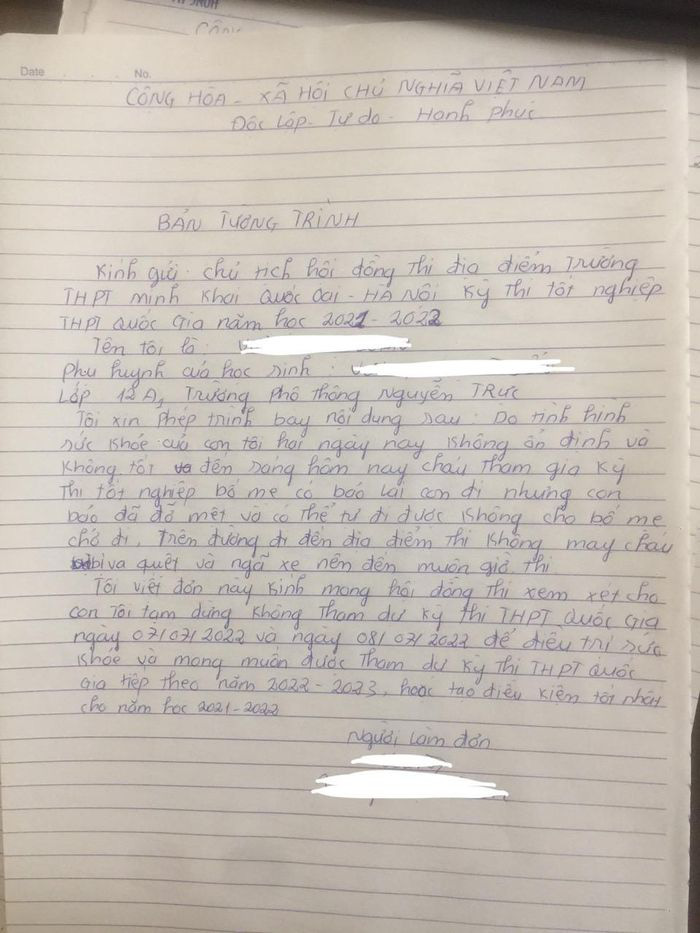 Date No.
CỘNG HÒA - XÃ HỘI CHỦ NGHĨA VIỆT NAM
Độc Lập - Tự do - Hạnh Phúc
BẢN TƯỜNG TRÌNH
Kính gửi: chủ tịch hội đồng thi địa điểm Trường
THPT minh khai Quốc Oai - HÀ NỘI kỳ thi tốt nghiệp
THPT Quốc Gia năm học 2021 - 2022
Tên tôi là:
phụ huynh của học sinh:
Lớp 12A, Trường Phổ Thông Nguyễn TRực
Tôi xin phép trình bày nội dung sau: Do tình hình
sức khỏe của con tôi hai ngày nay không ổn định và
không tốt đến sáng hôm nay cháu tham gia kỳ
thi tốt nghiệp bố mẹ có bảo lai con đi nhưng con
báo đã đỡ mệt và có thể tự đi được không cho bố mẹ
chở đi, trên đường đi đến địa điểm thi không may cháu
bị va quệt và ngã xe nên đến muộn giờ thi
Tôi viết đơn này kính mong hội đồng thi xem xét cho
con tôi tạm dừng không tham dự kỳ thi THPT Quốc Gia
ngày 07/07/2022 và ngày 08/07/2022 để điều trị sức
khỏe và mong muốn được tham dự kỳ thi THPT Quốc
Gia tiếp theo năm 2022 - 2023, hoặc tạo điều kiện tốt nhất
cho năm học 2021-2022
Người làm đơn